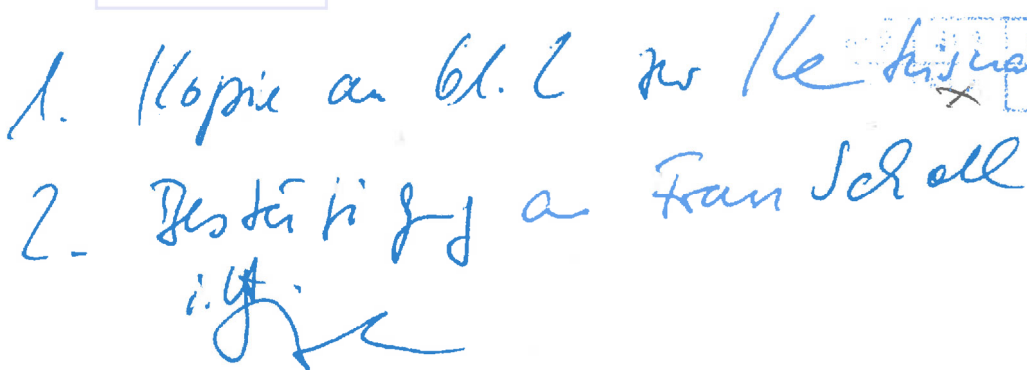 1. Kopie an Gl. 2 zur Kenntnisna
2. Bestätigung an Frau Scholl